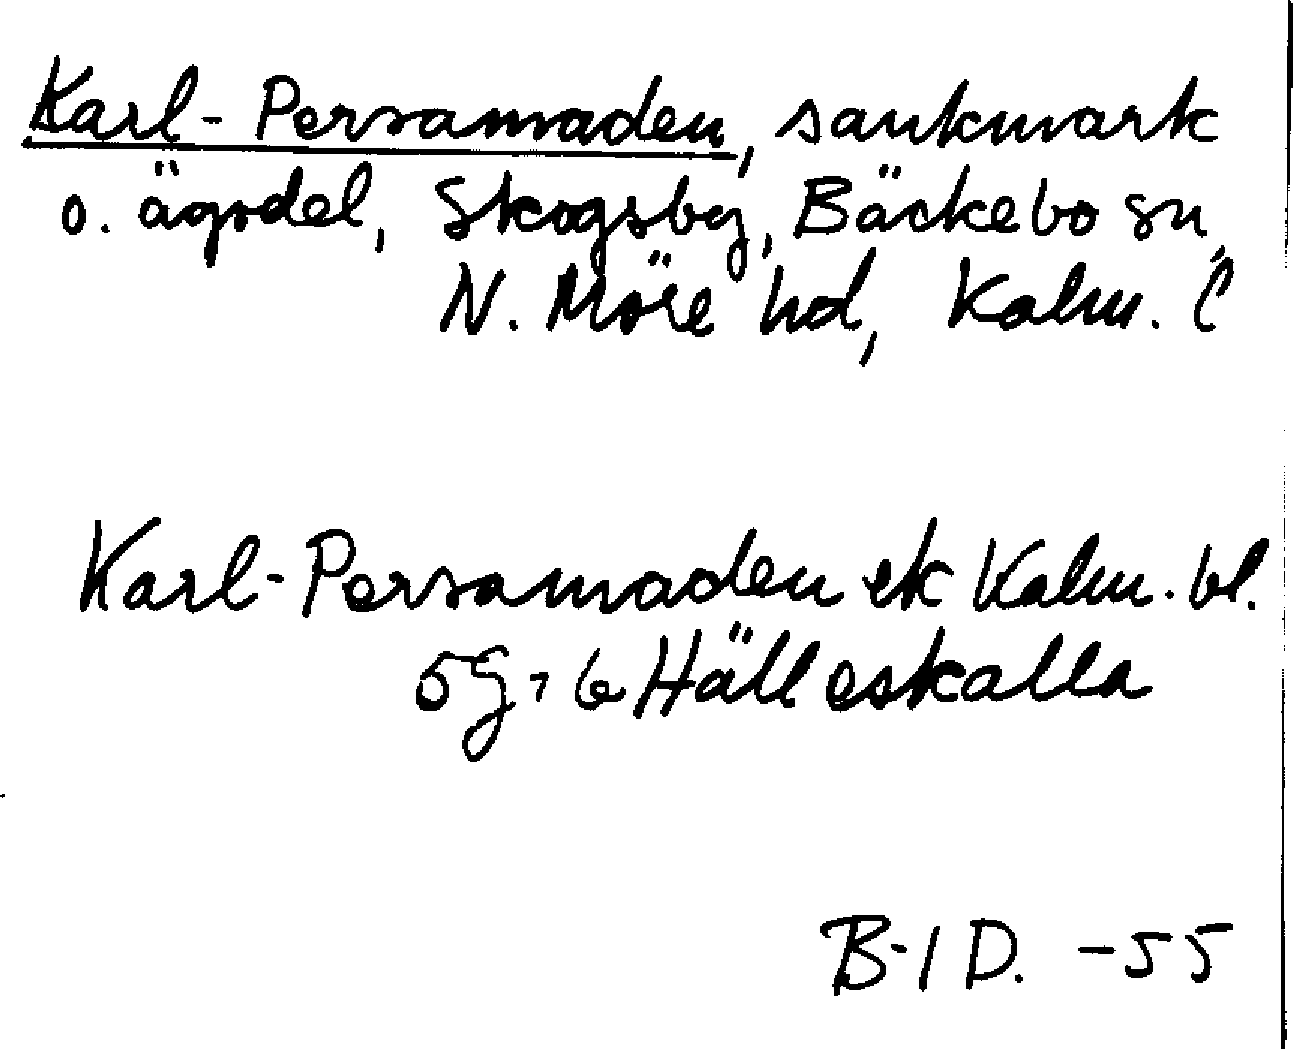 Karl-Persamaden, sankmark
o. ägodel, Skogsby, Bäckebo sn,
N. Möre hd, Kalm. l
Karl-Persamaden ek Kalm. bl.
5g, 6 Hälleskalla
B-I D. -55